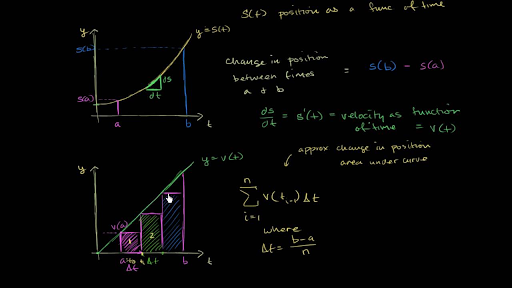 s(t) position as a func of time
y
y=s(t)
s(b)
change in position
between times
a & b
= s(b) - s(a)
ds
dt
s(a)
a
b
t
ds/dt = s'(t) = velocity as function
of time = v(t)
approx change in position
area under curve
y
y=v(t)
n
∑ v(t_{i-1}) Δt
i=1
v(a)
1
2
where
Δt = b-a/n
a
Δt
b
t
Δt